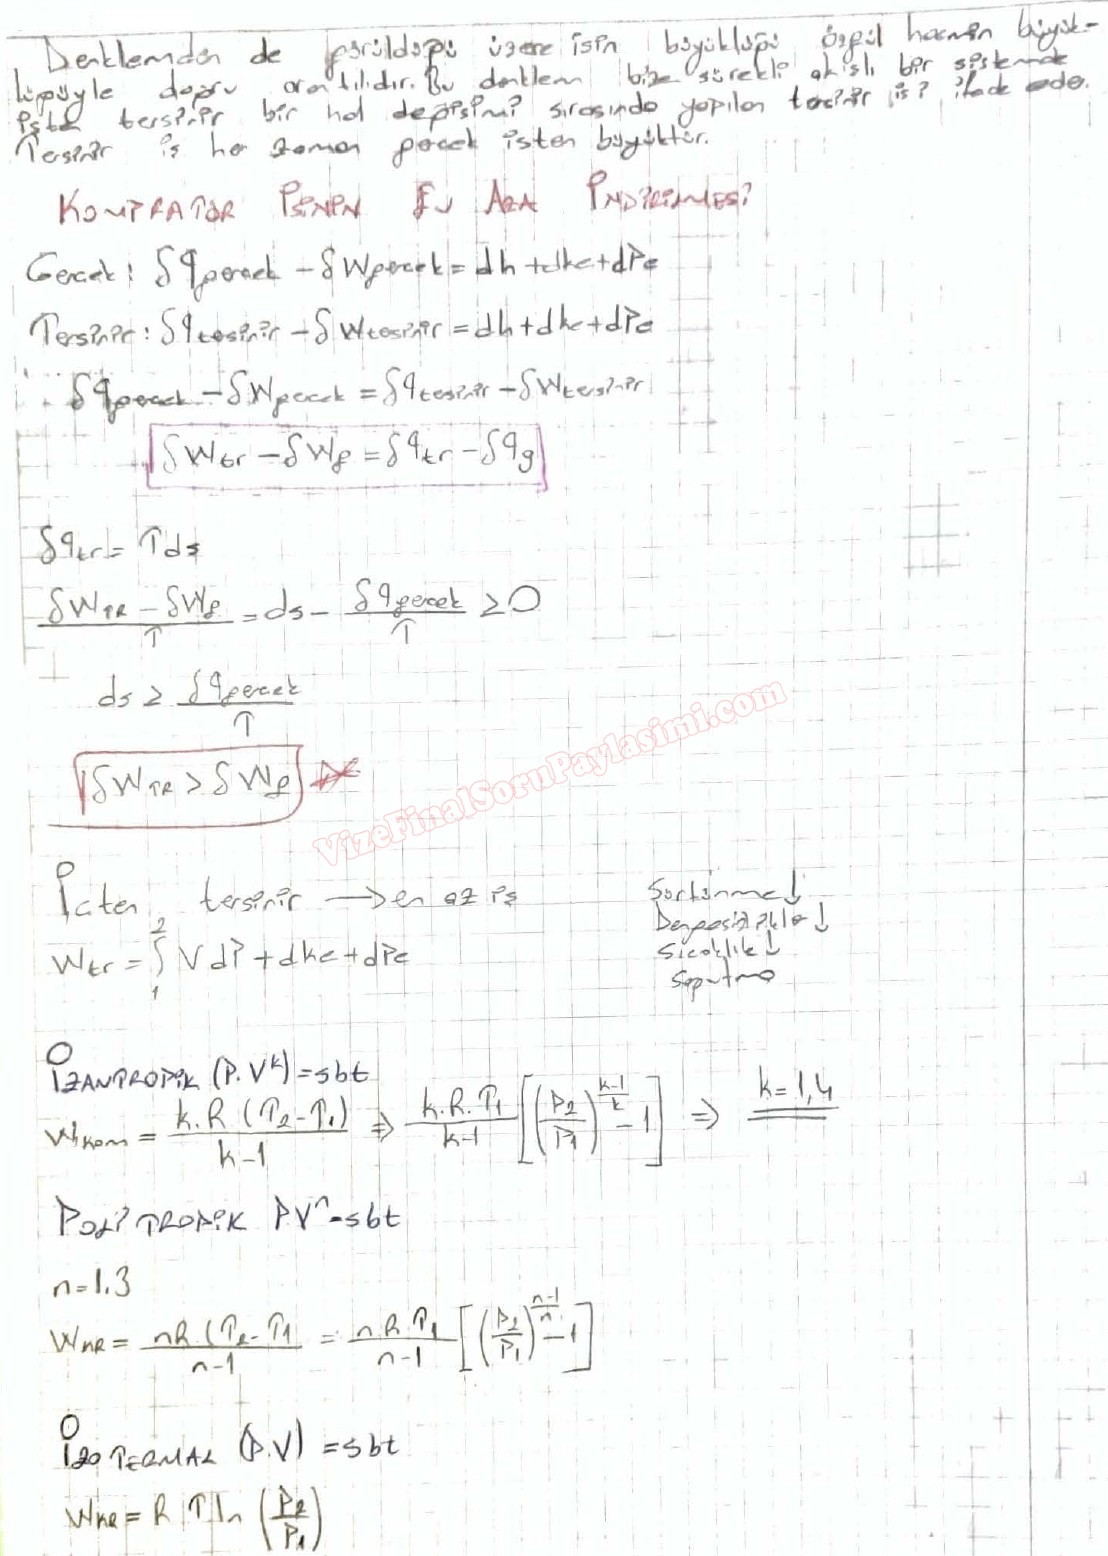 Denklemden de görüldüğü üzere işin büyüklüğü özgül hacmin büyük-
lüğüyle doğru orantılıdır. Bu denklem bize sürekli akışlı bir sistemde
içten tersinir bir hal değişimi sırasında yapılan tersinir işi ifade eder.
Tersinir iş her zaman gerçek işten büyüktür.
KOMPRATÖR İŞİNİN EN AZA İNDİRİLMESİ
Gerçek: δq gerçek - δw gerçek = dh + dke + dPe
Tersinir: δq tersinir - δw tersinir = dh + dke + dPe
δq gerçek - δw gerçek = δq tersinir - δw tersinir
δw tr - δw g = δq tr - δq g
δq tr = T ds
(δw TR - δw g) / T = ds - δq gerçek / T ≥ 0
ds ≥ δq gerçek / T
δw TR > δw g
VizeFinalSoruPaylasimi.com
İçten tersinir → en az iş
Sürtünme ↓
Dengesizlikler ↓
Sıcaklık ↓
Soğutma
W tr = ∫₁² V dP + dke + dPe
İZANTROPİK (P.V^k) = sbt
W kom = k.R (T2 - T1) / (k-1) ⇒ k.R.T1 / (k-1) [(P2/P1)^((k-1)/k) - 1] ⇒ k = 1,4
POLİTROPİK PV^n = sbt
n = 1.3
W KR = nR (T2 - T1 / (n-1) = n.R.T1 / (n-1) [(P2/P1)^((n-1)/n) - 1]
İZOTERMAL (P.V) = sbt
W KR = R T ln (P2/P1)